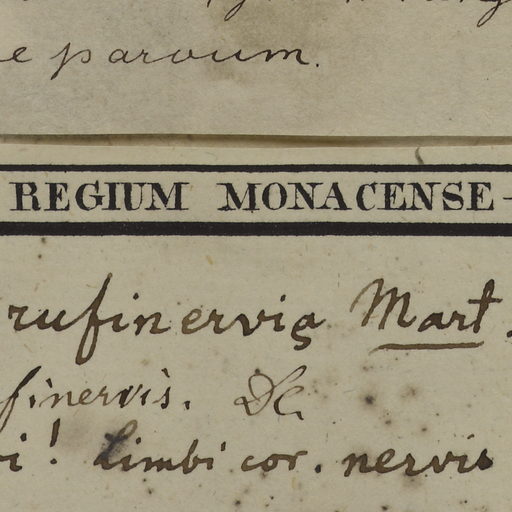 e parvum.
REGIUM MONACENSE
rufinervis Mart.
finervis. DC
vi! limbi cor. nervis